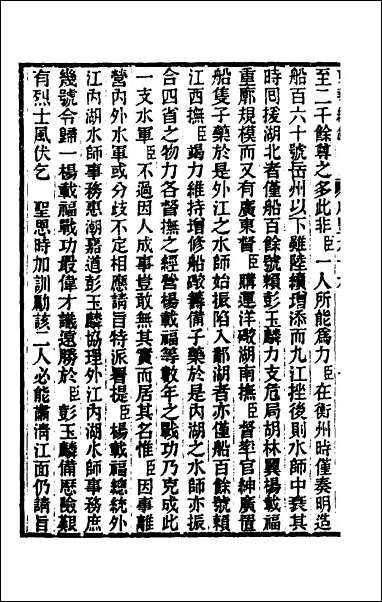 至二千餘尊之多此非臣一人所能爲力臣在衡州時僅奏明造
船百六十號岳州以下雖陸續增添而九江挫後則水師中衰其
時囘援湖北者僅船百餘號賴彭玉麟力支危局胡林翼楊載福
重廓規模而又有廣東督臣購運洋礮湖南撫臣督率官紳廣置
船隻子藥於是外江之水師始振陷入鄱湖者亦僅船百餘號賴
江西撫臣竭力維持增修船礮籌備子藥於是內湖之水師亦振
合四省之物力各督撫之經營楊載福等數年之戰功乃克成此
一支水軍臣不過因人成事豈敢無其實而居其名惟臣因事離
營內外水軍或分歧不定相應請旨特派署提臣楊載福總統外
江內湖水師事務惠潮嘉道彭玉麟協理外江內湖水師事務庶
幾號令歸一楊載福戰功最偉才識遠勝於臣彭玉麟備歷險艱
有烈士風伏乞 聖恩時加訓勵該二人必能肅淸江面仍請旨